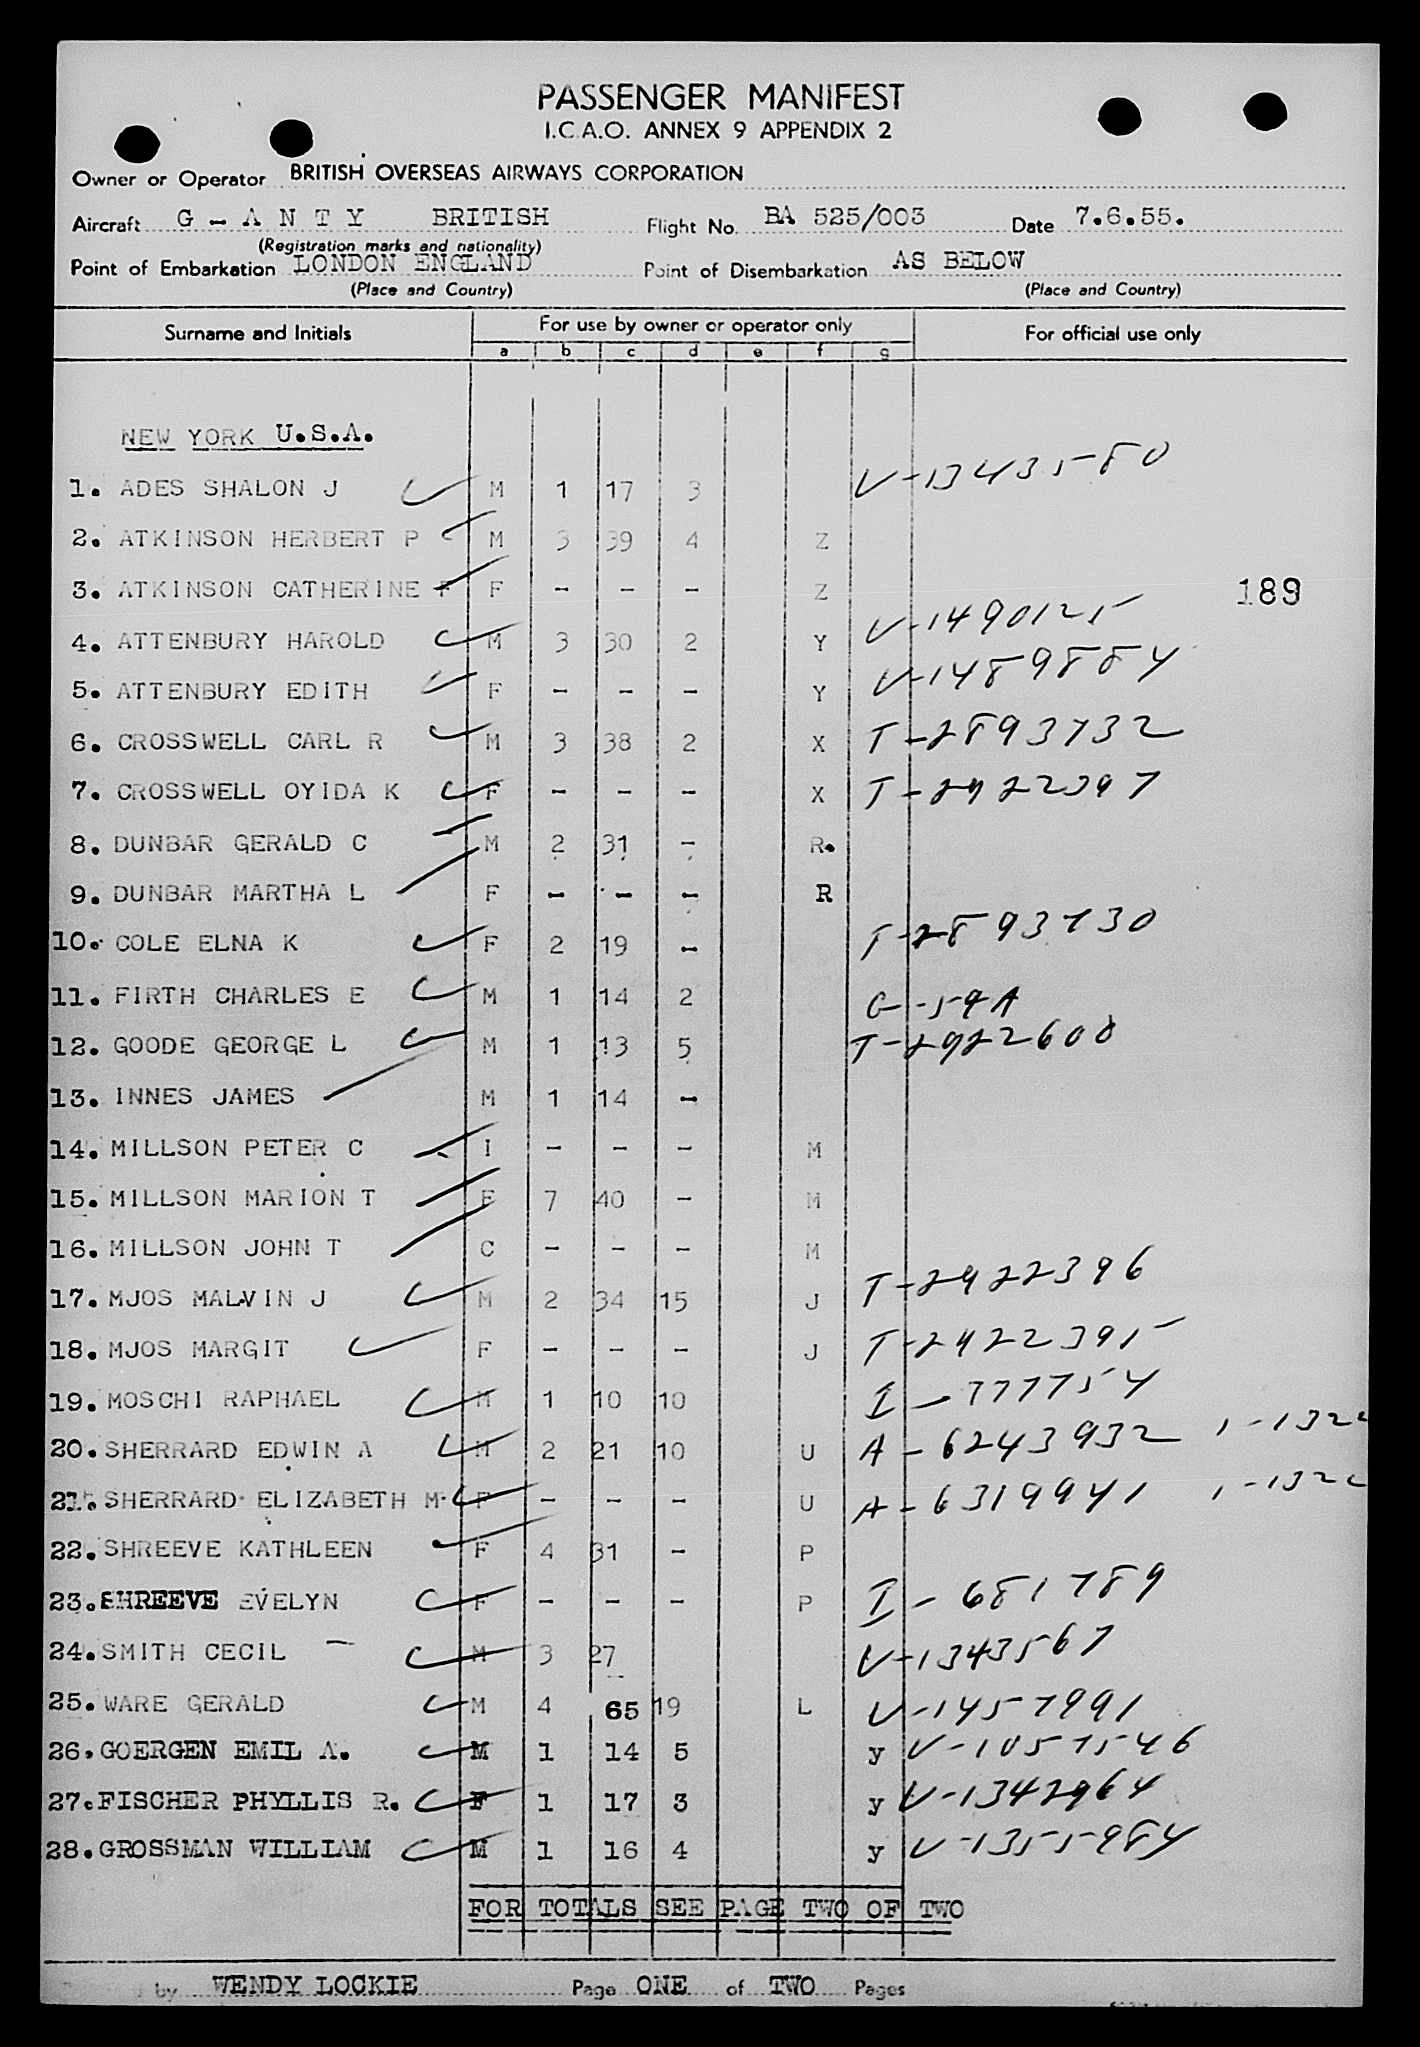 PASSENGER MANIFEST
I.C.A.O. ANNEX 9 APPENDIX 2
Owner or Operator BRITISH OVERSEAS AIRWAYS CORPORATION
Aircraft G - A N T Y BRITISH Flight No. BA 525/003 Date 7.6.55.
(Registration marks and nationality)
Point of Embarkation LONDON ENGLAND Point of Disembarkation AS BELOW
(Place and Country) (Place and Country)
Surname and Initials For use by owner or operator only For official use only
a b c d e f g
NEW YORK U.S.A.
1. ADES SHALON J M 1 17 3 V-1343580
2. ATKINSON HERBERT P M 3 39 4 Z
3. ATKINSON CATHERINE F F - - - Z 189
4. ATTENBURY HAROLD M 3 30 2 Y V-1490125
5. ATTENBURY EDITH F - - - Y V-1489884
6. CROSSWELL CARL R M 3 38 2 X T-2893732
7. CROSSWELL OYIDA K F - - - X T-2922397
8. DUNBAR GERALD C M 2 31 - R.
9. DUNBAR MARTHA L F - - - R
10. COLE ELNA K F 2 19 - T-2893730
11. FIRTH CHARLES E M 1 14 2 G-59A
12. GOODE GEORGE L M 1 13 5 T-2922600
13. INNES JAMES M 1 14 -
14. MILLSON PETER C I - - - M
15. MILLSON MARION T F 7 40 - M
16. MILLSON JOHN T C - - - M
17. MJOS MALVIN J M 2 34 15 J T-2922396
18. MJOS MARGIT F - - - J T-2922395
19. MOSCHI RAPHAEL M 1 10 10 I-777754
20. SHERRARD EDWIN A M 2 21 10 U A-6243932 1-132
21. SHERRARD ELIZABETH M F - - - U A-6319941 1-132
22. SHREEVE KATHLEEN F 4 31 - P
23. SHREEVE EVELYN F - - - P I-681789
24. SMITH CECIL M 3 27 V-1343567
25. WARE GERALD M 4 65 19 L V-1457991
26. GOERGEN EMIL A. M 1 14 5 y V-1057546
27. FISCHER PHYLLIS R. F 1 17 3 y V-1342964
28. GROSSMAN WILLIAM M 1 16 4 y V-1355984
FOR TOTALS SEE PAGE TWO OF TWO
by WENDY LOCKIE Page ONE of TWO Pages